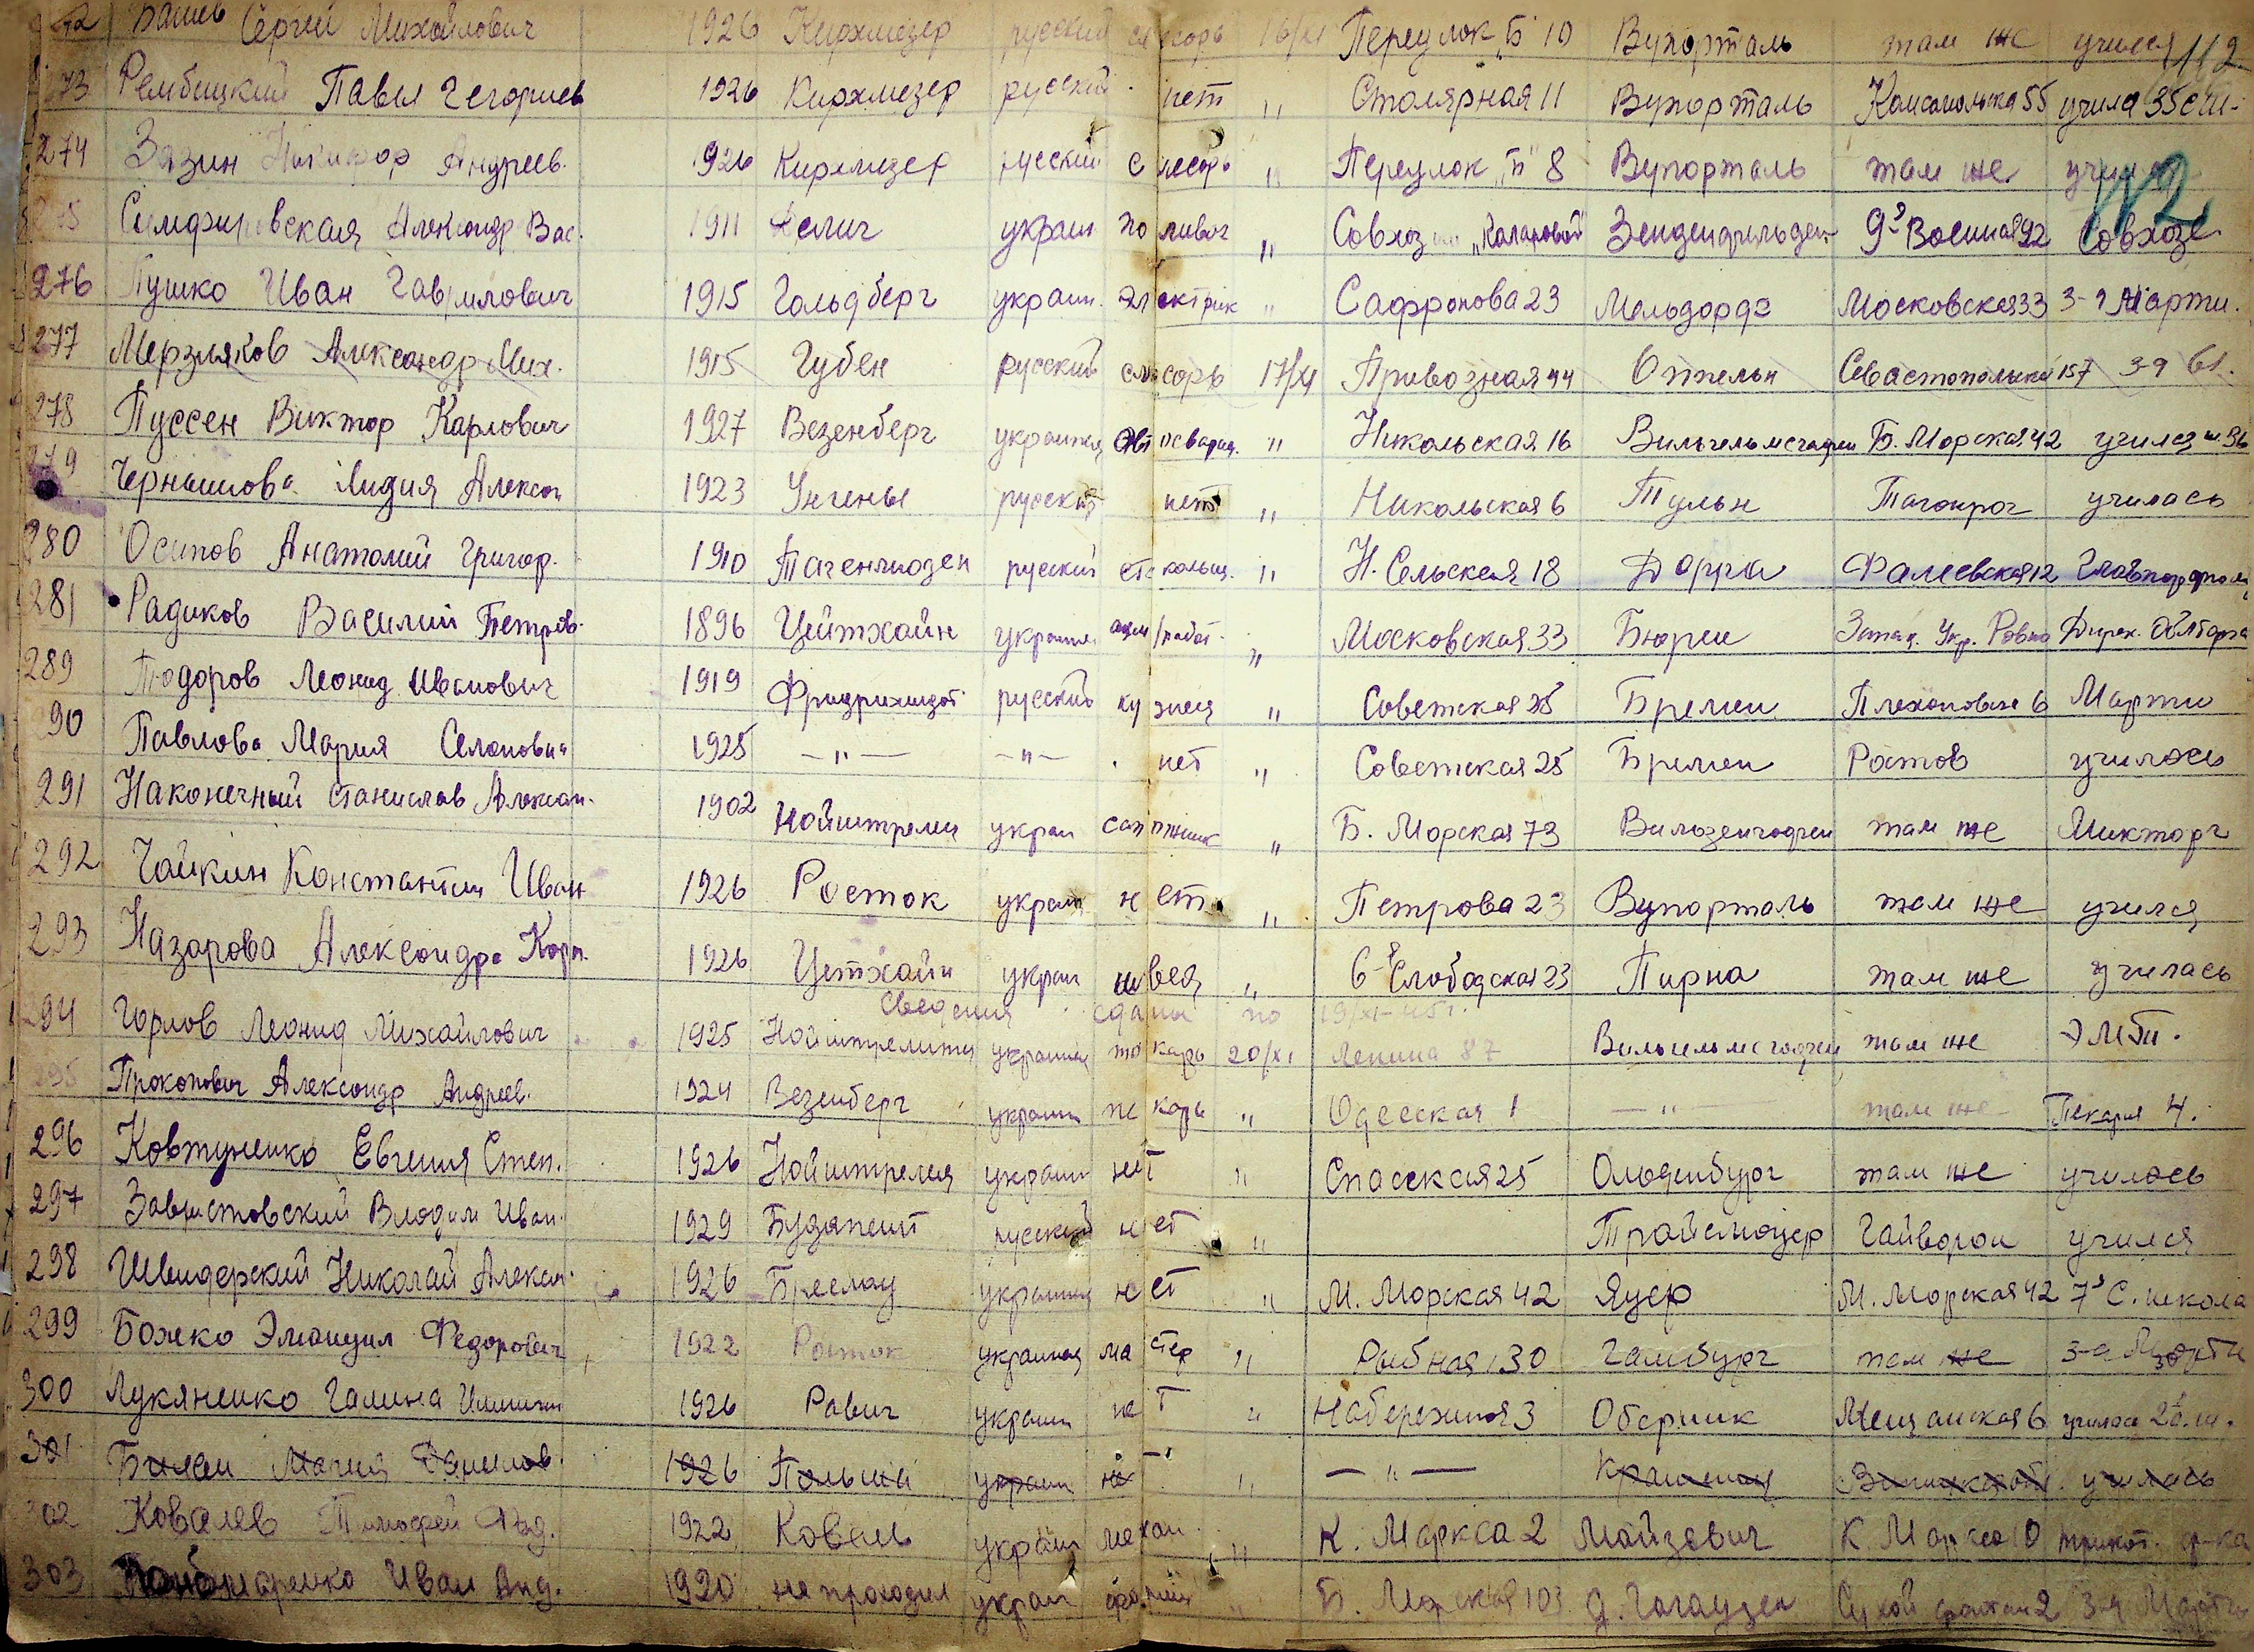 272 Башев Сергей Михайлович 1926 Кирхмезер русский слесарь 16/XI Переулок "Б" 10 Вупорталь там же учился 112
273 Рембицкий Павел Гегориев 1926 Кирхмезер русский нет " Столярная 11 Вупорталь Комсомольска 55 учился 35 с.ш.
274 Зязин Андреев. 1926 Кирхмезер русский слесарь " Переулок "Б" 8 Вупорталь там же 112
275 Александр Вас. 1911 украин " Совхоз 9я Военная 92 Совхозе
276 Пушко Иван Гаврилович 1915 Гольдберг украин. электрик " Сафронова 23 Мельдорф Московская 33 З-д Марти.
277 Мерзляков Александр Мих. 1915 Губен русский слесарь 17/XI Привозная 44 Оппельн Севастопольская 157
278 Пуссен Виктор Карлович 1927 Везенберг украинец " Никольская 16 Вильгельмсгафен Б. Морская 42 учился ш. 36
279 Чернышова Лидия Алексан 1923 Унгены русская нет " Никольская 6 Тульн Таганрог училась
280 Осипов Анатолий Григор. 1910 русский стекольщ. " Н. Сельская 18 Дорра Фалеевская 12
281 Радиков Василий Петров. 1896 Цейтхайн украинец " Московская 33 Бюрен Запад. Укр. Ровно Дирек.
289 Тодоров Леонид Иванович 1919 русский кузнец " Советская 25 Бремен Плехановская 6 Марти
90 Павлова Мария Семеновна 1925 —"— —"— нет " Советская 25 Бремен Ростов училась
291 Наконечный Станислав Алексан. 1902 Нойштрелиц украин сапожник " Б. Морская 73 там же Микторг
292 Чайкин Константин Иван 1926 Росток украин нет " Петрова 23 Вупорталь там же учился
293 Назарова Александра Корн. 1926 Цетхайн украин швея " 6я Слободская 23 Пирна там же училась
Сведения сданы по 19/XI-45г.
294 Горлов Леонид Михайлович 1925 Нойштрелитц украинец токарь 20/XI Ленина 87 Вильгельмсгафен там же
295 Прокопович Александр Андреев. 1924 Везенберг украин пекарь " Одесская 1 —"— там же Пекарня 4.
296 Ковтуненко Евгения Степ. 1926 Нойштрелиц украин нет " Спасская 25 Ольденбург там же училась
297 Завристовский Владим Иван. 1929 Будапешт русский нет " Гайворон учился
298 Швидерский Николай Алексан. 1926 Бреслау украинец нет " М. Морская 42 Яуер М. Морская 42 7я С. школа
299 Божко Эмануил Федорович 1922 Росток украинец мастер " Рыбная 30 Гамбург там же З-д Марти
300 Лукяненко Галина 1926 Равич украин нет " Набережная 3 Оберник Мещанская 6 училась
301 Билан Мария Данилов. 1926 Польша украин не " —"— училась
302 Ковалев Тимофей Фед. 1922 Ковель украин механ. " К. Маркса 2 Майзевич К. Маркса 10 трикот. ф-ка
303 Пономаренко Иван Анд. 1920 не проходил украин " Б. Морская 103 З-д Марти